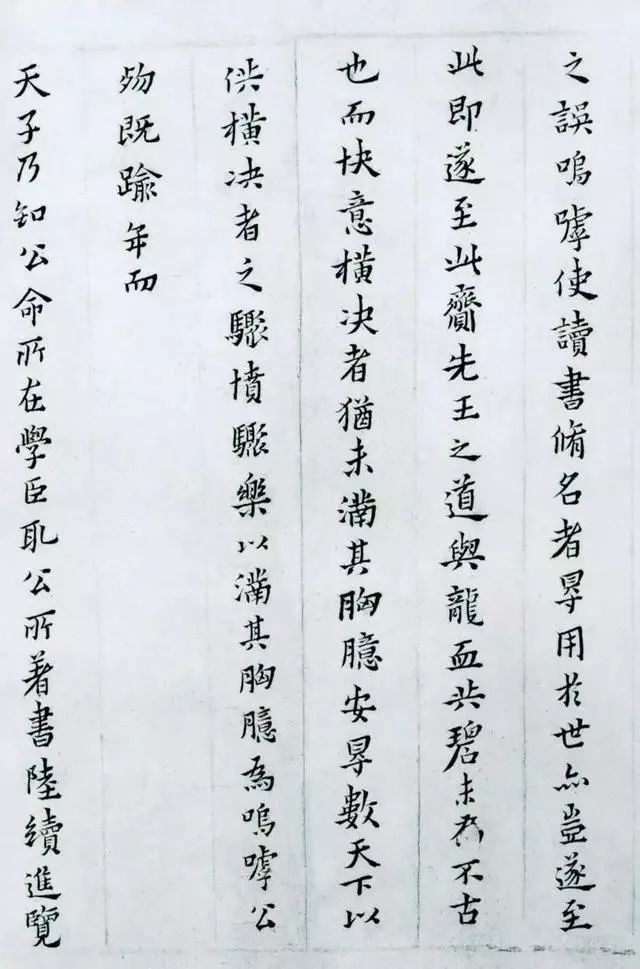 之誤嗚嘑使讀書脩名者㝵用於世亦豈遂至
此即遂至此齎先王之道與龍血共碧未為不古
也而快意橫决者猶未滿其胸臆安㝵數天下以
供橫决者之驟憤驟樂以滿其胸臆為嗚嘑公
歾既踰年而
天子乃知公命所在學臣取公所著書陸續進覽